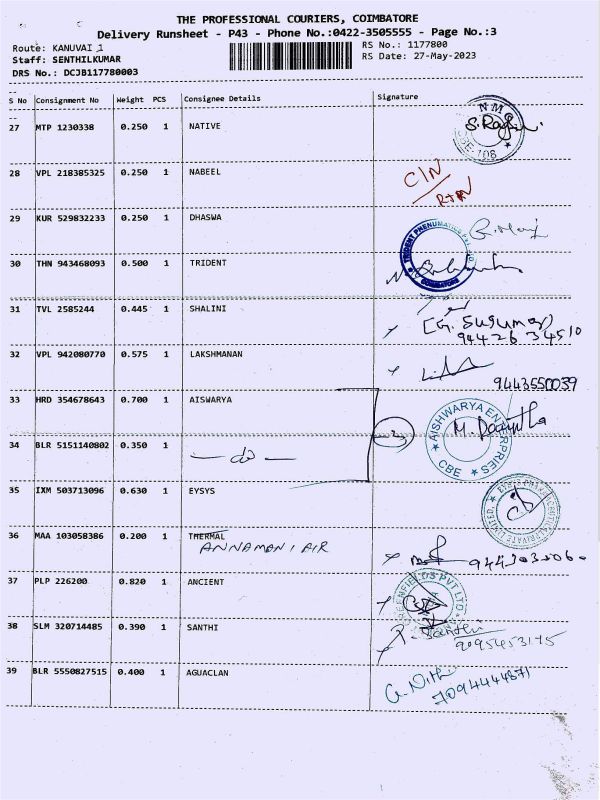 THE PROFESSIONAL COURIERS, COIMBATORE
Delivery Runsheet - P43 - Phone No.:0422-3505555 - Page No.:3
Route: KANUVAI 1
Staff: SENTHILKUMAR
DRS No.: DCJB117780003
RS No.: 1177800
RS Date: 27-May-2023
S No Consignment No Weight PCS Consignee Details Signature
27 MTP 1230338 0.250 1 NATIVE
28 VPL 218385325 0.250 1 NABEEL C/N
RTN
29 KUR 529832233 0.250 1 DHASWA
30 THN 943468093 0.500 1 TRIDENT
COIMBATORE
31 TVL 2585244 0.445 1 SHALINI
94426 34510
32 VPL 942080770 0.575 1 LAKSHMANAN
9443550039
33 HRD 354678643 0.700 1 AISWARYA
AISHWARYA ENTERPRISES
CBE
34 BLR 5151140802 0.350 1 — do —
35 IXM 503713096 0.630 1 EYSYS
36 MAA 103058386 0.200 1 THERMAL
ANNAMANI AIR
37 PLP 226200 0.820 1 ANCIENT
38 SLM 320714485 0.390 1 SANTHI P. Santhi
9095453145
39 BLR 5550827515 0.400 1 AGUACLAN
7094444871